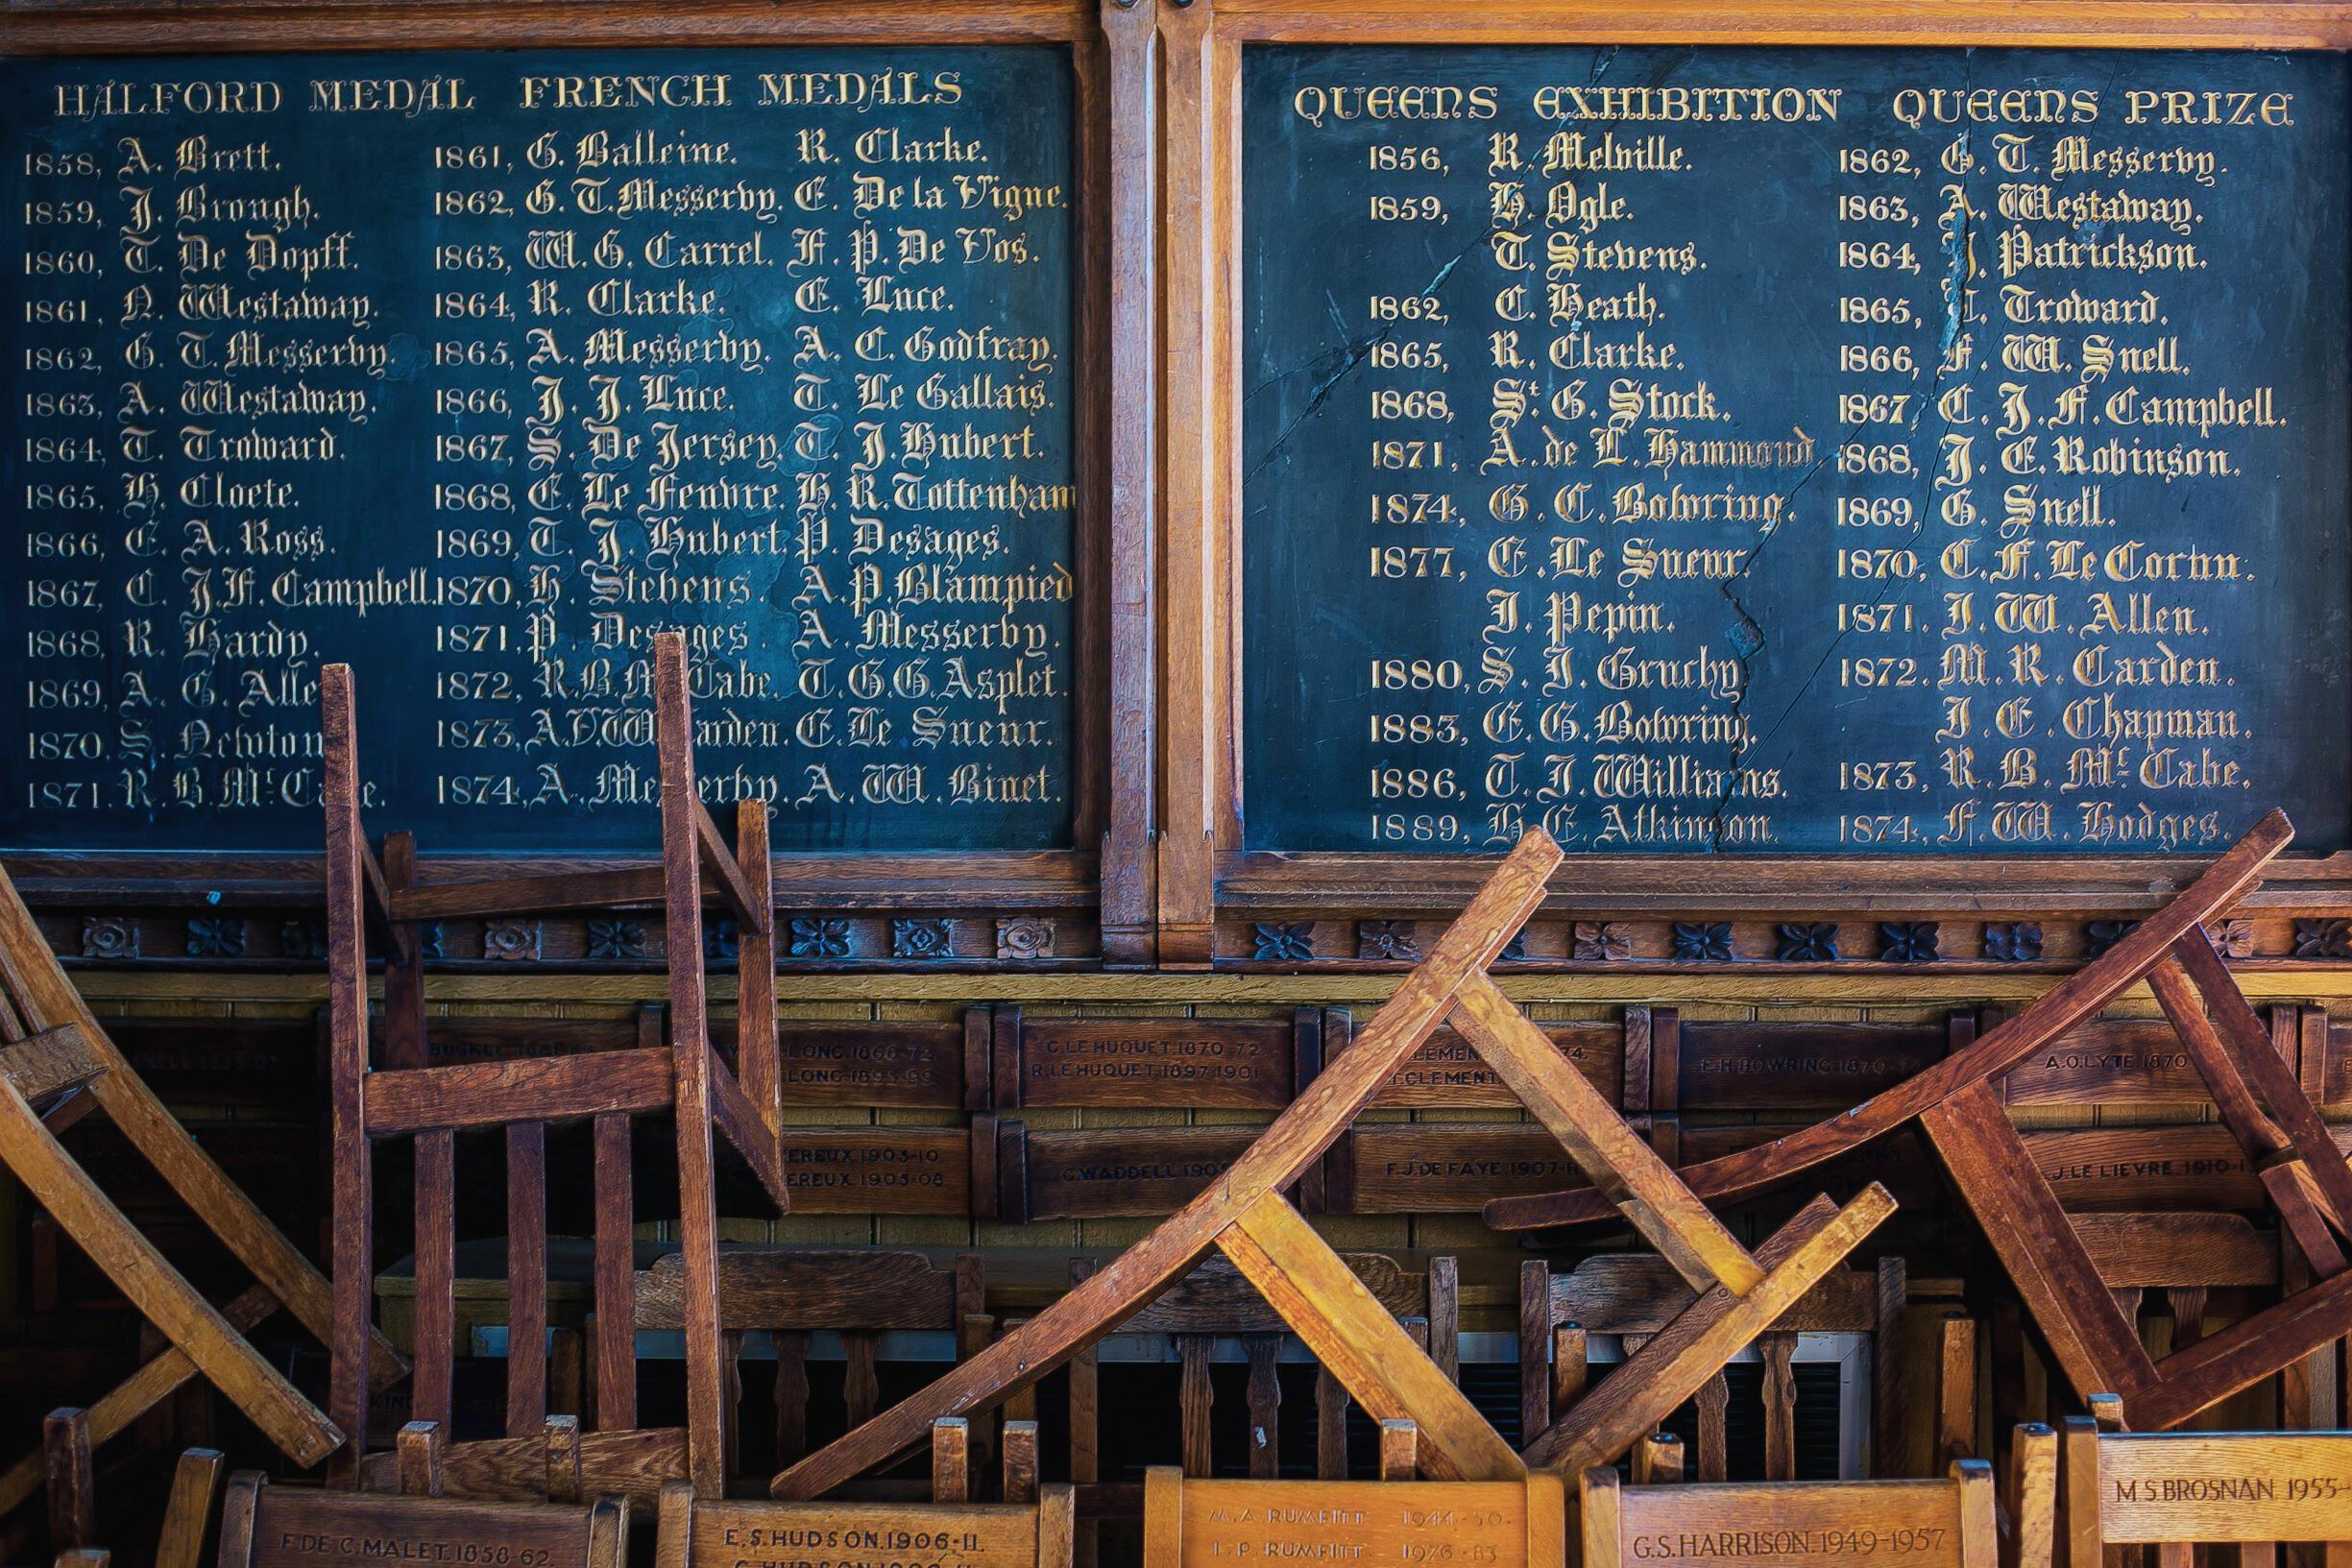 HALFORD MEDAL
1858, A. Brett.
1859, J. Brough.
1860, T. De Dopff.
1861, N. Westaway.
1862, G. T. Messervy.
1863, A. Westaway.
1864, T. Troward.
1865, H. Cloete.
1866, E. A. Ross.
1867, C. J. F. Campbell.
1868, R. Hardy.
1869, A. G. Alle
1870, S. Newton
1871. R. B. Mc
FRENCH MEDALS
1861, G. Balleine. R. Clarke.
1862, G. T. Messervy. E. De la Vigne.
1863, W. G. Carrel. F. P. De Vos.
1864, R. Clarke. E. Luce.
1865, A. Messervy. A. C. Godfray.
1866, J. J. Luce. T. Le Gallais.
1867, S. De Jersey. T. J. Hubert.
1868, E. Le Feuvre. H. R. Tottenham
1869, T. J. Hubert. P. Desages.
1870, H. Stevens. A. P. Blampied
1871, P. Desages. A. Messervy.
1872, R. B. M Cabe. T. G. G. Asplet.
1873, A. V. W arden. E. Le Sueur.
1874, A. Messervy. A. W. Binet.
QUEENS EXHIBITION
1856, R. Melville.
1859, H. Ogle.
T. Stevens.
1862, C. Heath.
1865, R. Clarke.
1868, St. G. Stock.
1871, A. de L. Hammond.
1874, G. C. Bowring.
1877, E. Le Sueur.
J. Pepin.
1880, S. J. Gruchy
1883, E. G. Bowring.
1886, T. J. Williams.
1889, H. E. Atkinson.
QUEENS PRIZE
1862, G. T. Messervy.
1863, A. Westaway.
1864, J. Patrickson.
1865, T. Troward.
1866, F. W. Snell.
1867, C. J. F. Campbell.
1868, J. E. Robinson.
1869, G. Snell.
1870, C. F. Le Cornu.
1871. J. W. Allen.
1872. M. R. Carden.
J. E. Chapman.
1873, R. B. Mc Cabe.
1874, F. W. Hodges.
LONG 1868-72
LONG 1895-99
G.LE HUQUET.1870-72
R.LE HUQUET.1897-1901
CLEMENT
E.H.BOWRING.1870-74
A.O.LYTE.1870
EREUX.1903-10
EREUX.1903-08
C.WADDELL.190
F.J.DE FAYE.1907-11
J.LE LIEVRE.1910-1
F.DE C.MALET.1858-62.
E.S.HUDSON.1906-11.
M.A.RUMFITT. 1944-50.
I.P.RUMFITT. 1976-83
G.S.HARRISON.1949-1957
M.S.BROSNAN. 1955-